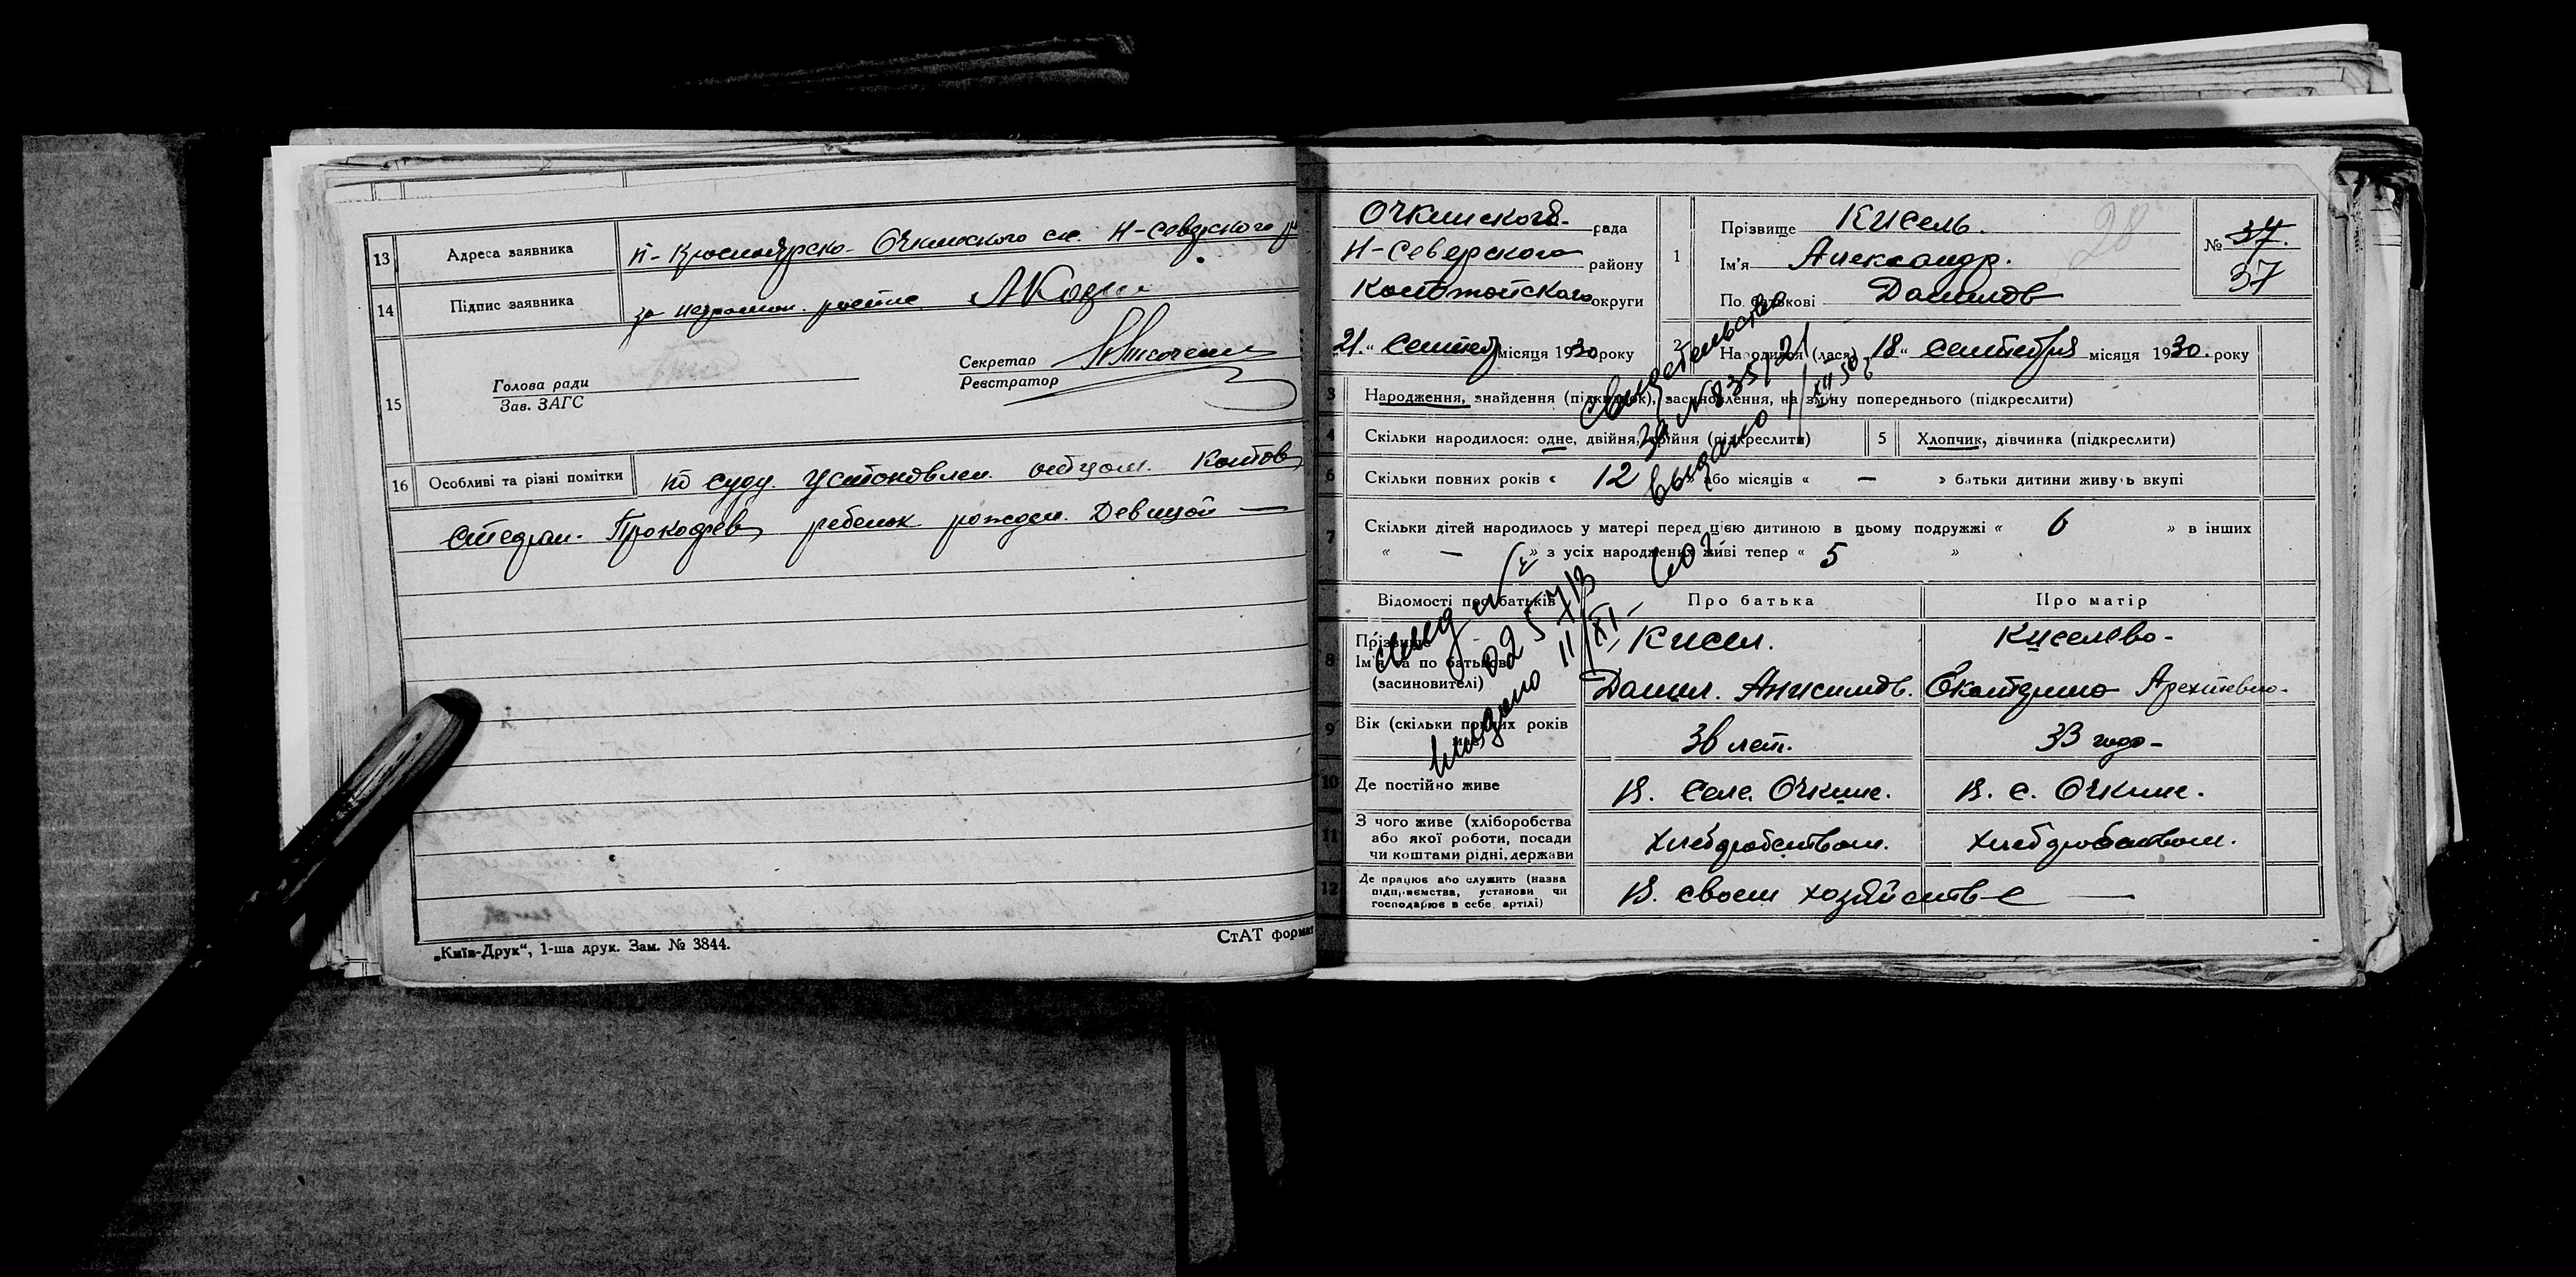 13 Адреса заявника п-Красноярско-Очкинского с/с. Н-Северского
14 Підпис заявника за неграмотн. роспис.
15 Голова ради
Зав. ЗАГС
Секретар
Реєстратор
16 Особливі та різні помітки по суду установлен. отцом. Контов
Стефан. Прокофьев, ребенок рожден. Девицой —
„Київ-Друк“, 1-ша друк. Зам. № 3844.
СтАТ формат
Очкинского рада
Н-Северского району
Конотопского округи
21 " Сентяб місяця 1930 року
1 Прізвище Кисель.
Ім'я Александр.
По батькові Данилов
28
№ 37.
37
2 Народився (лася) 18 " Сентября місяця 1930. року
3 Народження, знайдення (підкидьок), засиновлення, на зміну попереднього (підкреслити)
4 Скільки народилося: одне, двійня, трійня (підкреслити)
5 Хлопчик, дівчинка (підкреслити)
6 Скільки повних років « 12 » або місяців « — » батьки дитини живуть вкупі
7 Скільки дітей народилось у матері перед цією дитиною в цьому подружжі « 6 » в інших
« — » з усіх народжених живі тепер « 5 »
Свидетельство
за № 835121
выдано
выдано 11/XI-
Відомості про батьків Про батька Про матір
8 Прізвище Кисел. Киселева-
Ім'я та по батькові
(засиновителі) Данил. Анисимов. Екатерина
9 Вік (скільки повних років 36 лет. 33 года-
10 Де постійно живе В. Селе. Очкине. В. с. Очкине.
11 З чого живе (хліборобства
або якої роботи, посади
чи коштами рідні, держави Хлеборобством. Хлеборобством.
12 Де працює або служить (назва
підприємства, установи чи
господарює в себе, артілі) В. своем хозяйстве —